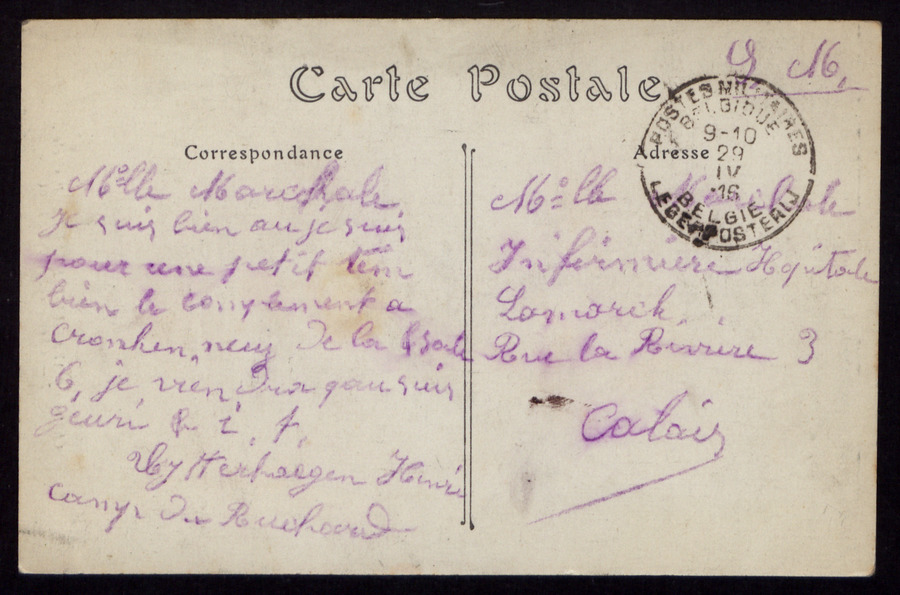 S M.
Carte Postale
POSTES MILITAIRES
BELGIQUE
9-10
29
IV
16
BELGIE
LEGERPOSTERIJ
Correspondance
Melle Marchale
Je suis bien au je suis
pour une petit tem
bien le conplement a
de la
6, je viendra gau suis
geuri
Uytterhaegen Henri
camp du Ruchard
Adresse
Melle Marchale
Infirmière Hopitale
Lamarck
Rue la Rivière 3
Calais